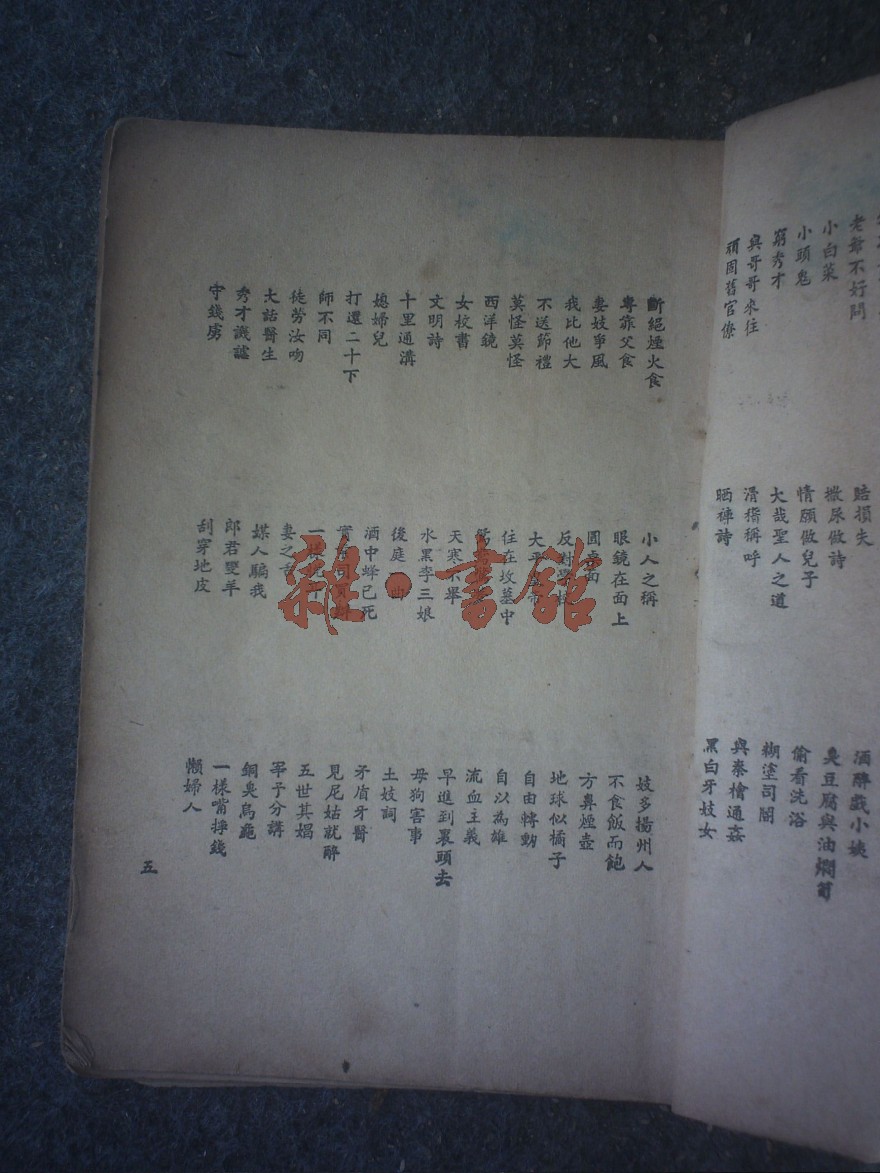 老爺不好問
小白菜
小頭鬼
窮秀才
與哥哥來往
頑固舊官僚
賠損失
撒尿做詩
情願做兒子
大哉聖人之道
滑稽稱呼
晒褲詩
酒醉戲小姨
臭豆腐與油燜筍
偷看洗浴
糊塗司閽
與秦檜通姦
黑白牙妓女
斷絕煙火食
專靠父食
妻妓爭風
我比他大
不送節禮
莫怪莫怪
西洋鏡
女校書
文明詩
十里通溝
媳婦兒
打還二十下
師不同
徒勞汝吻
大話醫生
秀才譏謔
守錢虜
小人之稱
眼鏡在面上
圓
反對學校
大
住在坟墓中
天寒不舉
水黑李三娘
後庭一曲
酒中蜂已死
一樣
妻之
媒人騙我
郎君變羊
刮穿地皮
妓多揚州人
不食飯而飽
方鼻煙壺
地球似橘子
自由轉動
自以為雄
流血主義
早進到裏頭去
母狗害事
土妓詞
矛盾牙醫
見尼姑就醉
五世其娼
宰予分講
銅臭烏龜
一樣嘴掙錢
懶婦人
五
雜·書館